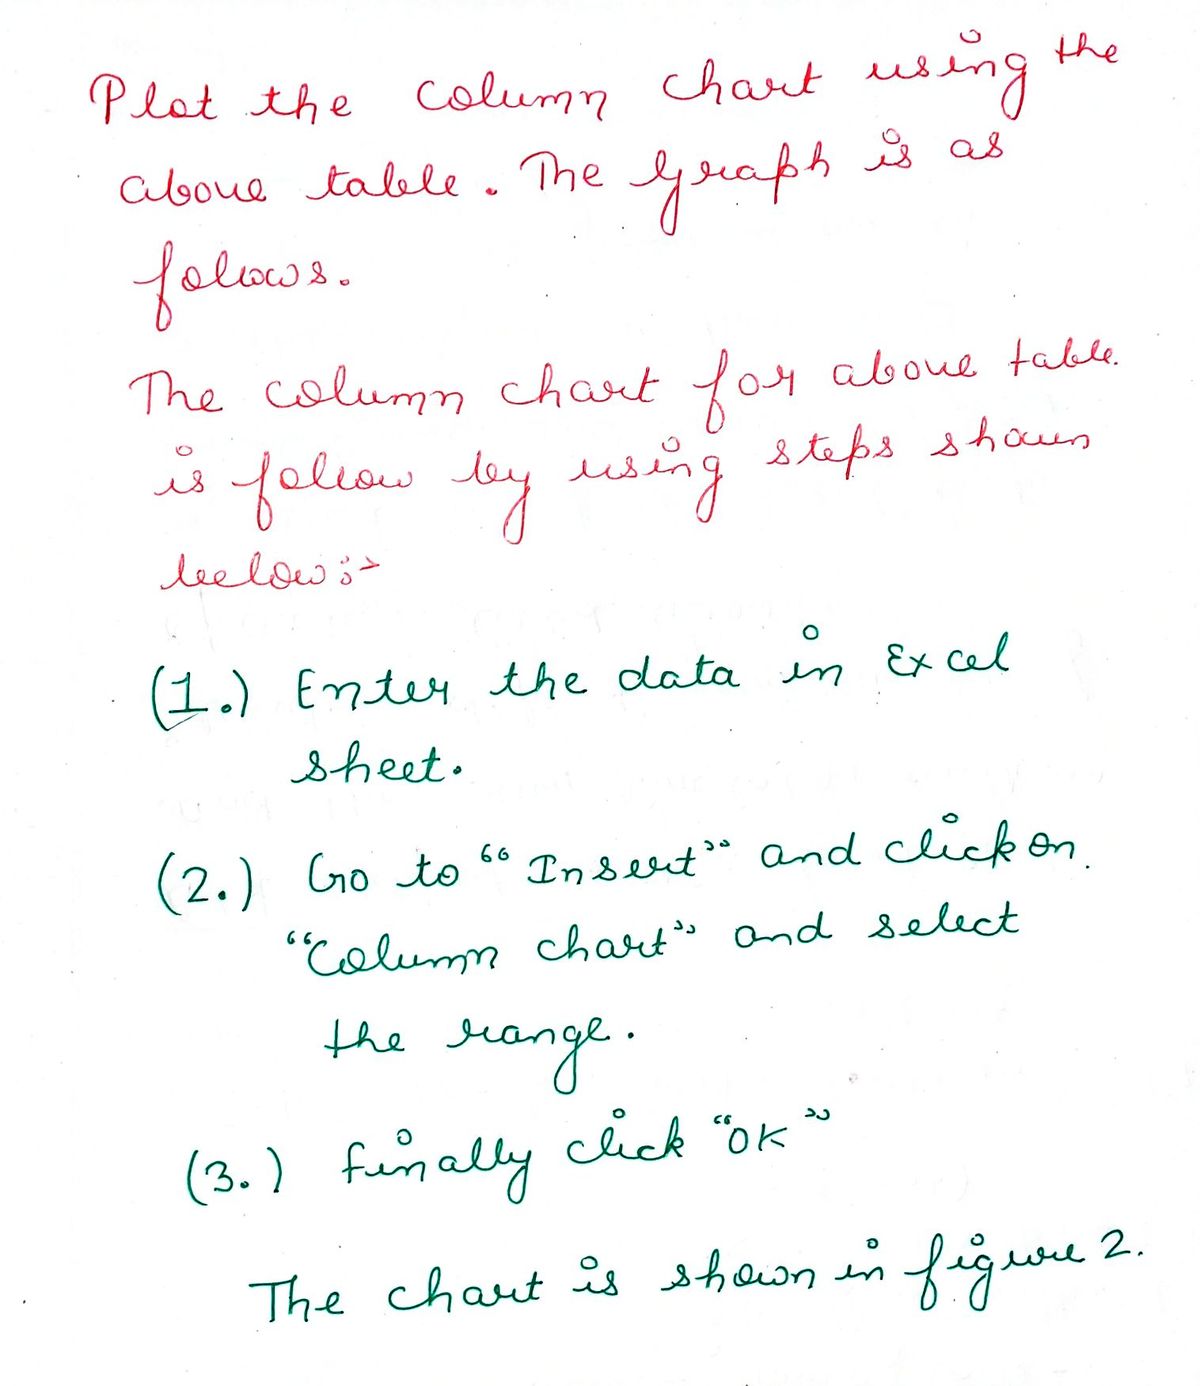 Plot the column chart using the
above table. The graph is as
follows.
The column chart for above table.
is follow by using steps shown
below:-
(1.) Enter the data in Excel
sheet.
(2.) Go to "Insert" and click on.
"Column chart" and select
the range.
(3.) Finally click "OK"
The chart is shown in figure 2.